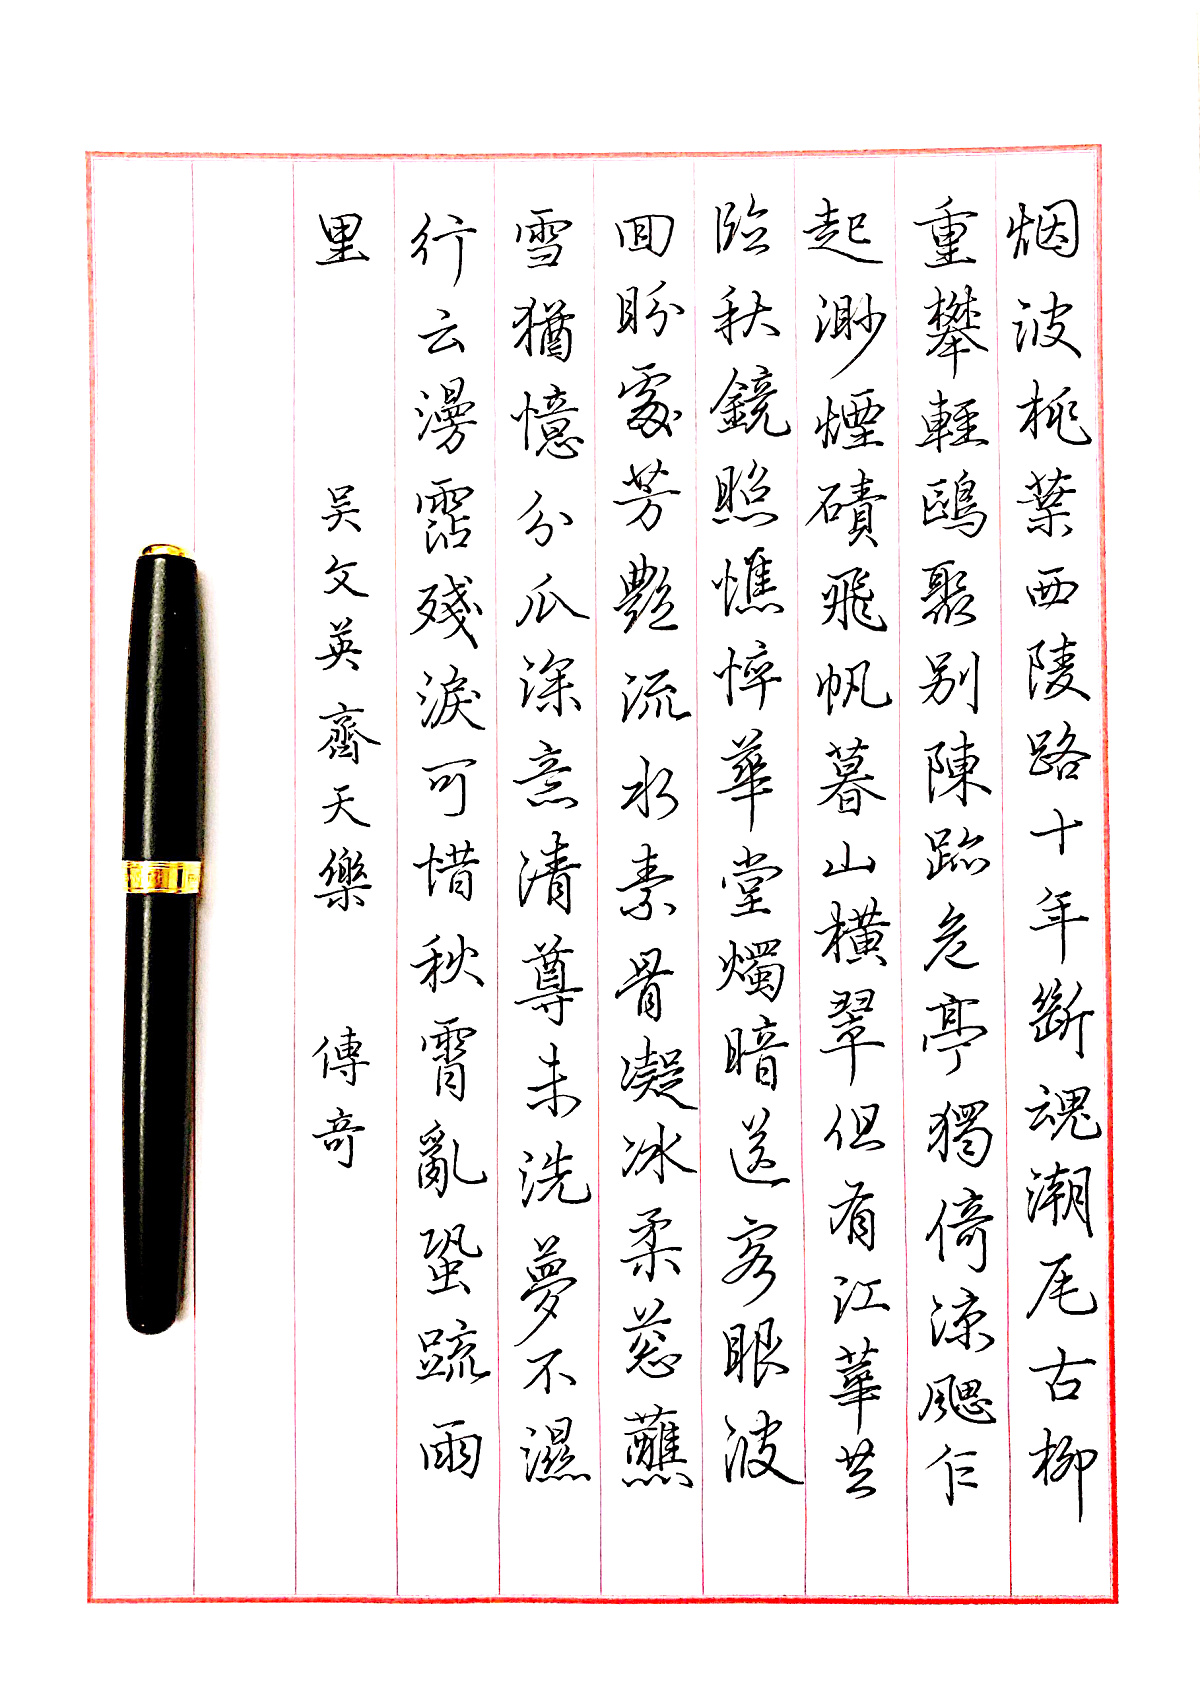 烟波桃葉西陵路十年斷魂潮尾古柳
重攀輕鷗聚别陳跡危亭獨倚涼颸乍
起渺煙磧飛帆暮山橫翠但有江華共
臨秋鏡照憔悴華堂燭暗送客眼波
回盼處芳艷流水素骨凝冰柔葱蘸
雪猶憶分瓜深意清尊未洗夢不濕
行云漫霑殘淚可惜秋霄亂蛩疏雨
里 吴文英齊天樂 傳奇